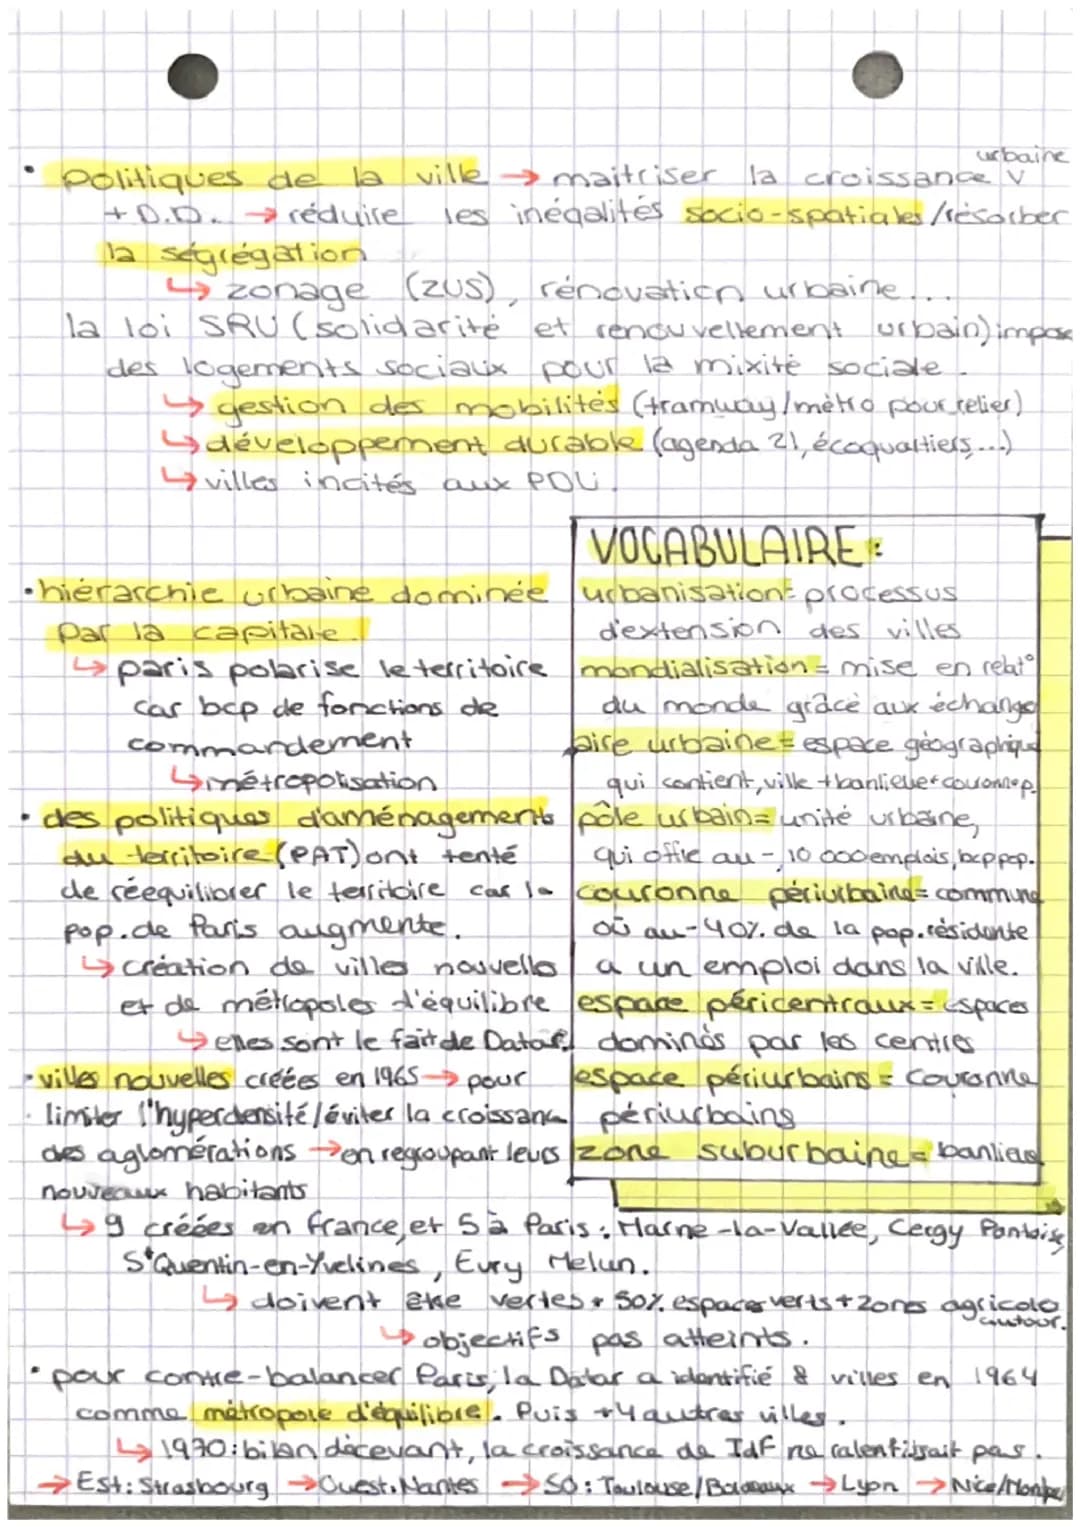 • Politiques de la ville → maitriser la croissance v urbaine
+ D.D. → réduire les inégalités socio-spatiales/résorber
la ségrégation
↳ zonage (ZUS), rénovation urbaine...
la loi SRU (solidarité et renouvellement urbain) impose
des logements sociaux pour la mixité sociale.
↳ gestion des mobilités (tramway/métro pour relier)
↳ développement durable (agenda 21, écoquartiers...)
↳ villes incités aux PDU.
• hiérarchie urbaine dominée
par la capitale.
↳ paris polarise le territoire
car bcp de fonctions de
commandement
↳ métropolisation
• des politiques d'aménagement
du territoire (PAT) ont tenté
de réequilibrer le territoire car la
pop. de Paris augmente.
↳ création de villes nouvelles
et de métropoles d'équilibre
↳ elles sont le fait de Datar.
• villes nouvelles créées en 1965 → pour
limiter l'hyperdensité/éviter la croissance
des aglomérations → en regroupant leurs
nouveaux habitants
VOCABULAIRE :
urbanisation = processus
d'extension des villes
mondialisation = mise en relat°
du monde grâce aux échange
aire urbaine = espace géographique
qui contient, ville + banlieue + couronne p.
pôle urbain = unité urbaine,
qui offre au - 10 000 emplois, bcp pop.
couronne périurbaine = commune
où au - 40% de la pop. résidente
a un emploi dans la ville.
espace péricentraux = espaces
dominés par les centres
espace périurbains = couronne
périurbains
zone suburbaine = banlieue
↳ 9 créées en france, et 5 à Paris : Marne-la-Vallée, Cergy Pontoise,
St Quentin-en-Yvelines, Evry Melun.
↳ doivent être vertes + 50% espaces verts + zones agricole autour.
↳ objectifs pas atteints.
• pour contre-balancer Paris, la Datar a identifié 8 villes en 1964
comme métropole d'équilibre. Puis +4 autres villes.
↳ 1970 : bilan décevant, la croissance de IdF ne ralentissait pas.
→ Est : Strasbourg → Ouest : Nantes → SO : Toulouse/Bordeaux → Lyon → Nice/Montpe